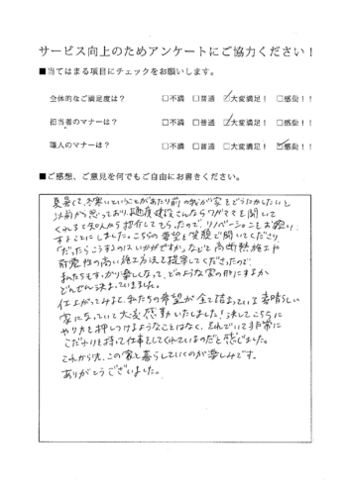 サービス向上のためアンケートにご協力ください！
■当てはまる項目にチェックをお願いします。
全体的なご満足度は？ □不満 □普通 ☑大変満足！ □感動！！
担当者のマナーは？ □不満 □普通 ☑大変満足！ □感動！！
職人のマナーは？ □不満 □普通 □大変満足！ ☑感動！！
■ご感想、ご意見を何でもご自由にお書きください。
夏暑くて、冬寒いということがあたり前の我が家をどうにかしたいと
以前から思っており、建設さんならワガママを聞いて
くれると知人から紹介してもらったので、リノベーションをお願い
することにしました。こちらの希望を笑顔で聞いてくださり
「だったらこうするのはいかがですか」などと高断熱施工や
耐震性の高い施工方法を提案してくださったので、
私たちもすっかり楽しくなって、どのような家の形にするか
どんどん決まっていきました。
仕上がってみると、私たちの希望が全て詰まっている素晴らしい
家になっていて大変感動いたしました！決してこちらに
やり方を押しつけるようなことはなく、それでいて非常に
こだわりを持って仕事をしてくれているのだと感じました。
これから先、この家と暮らしていくのが楽しみです。
ありがとうございました。